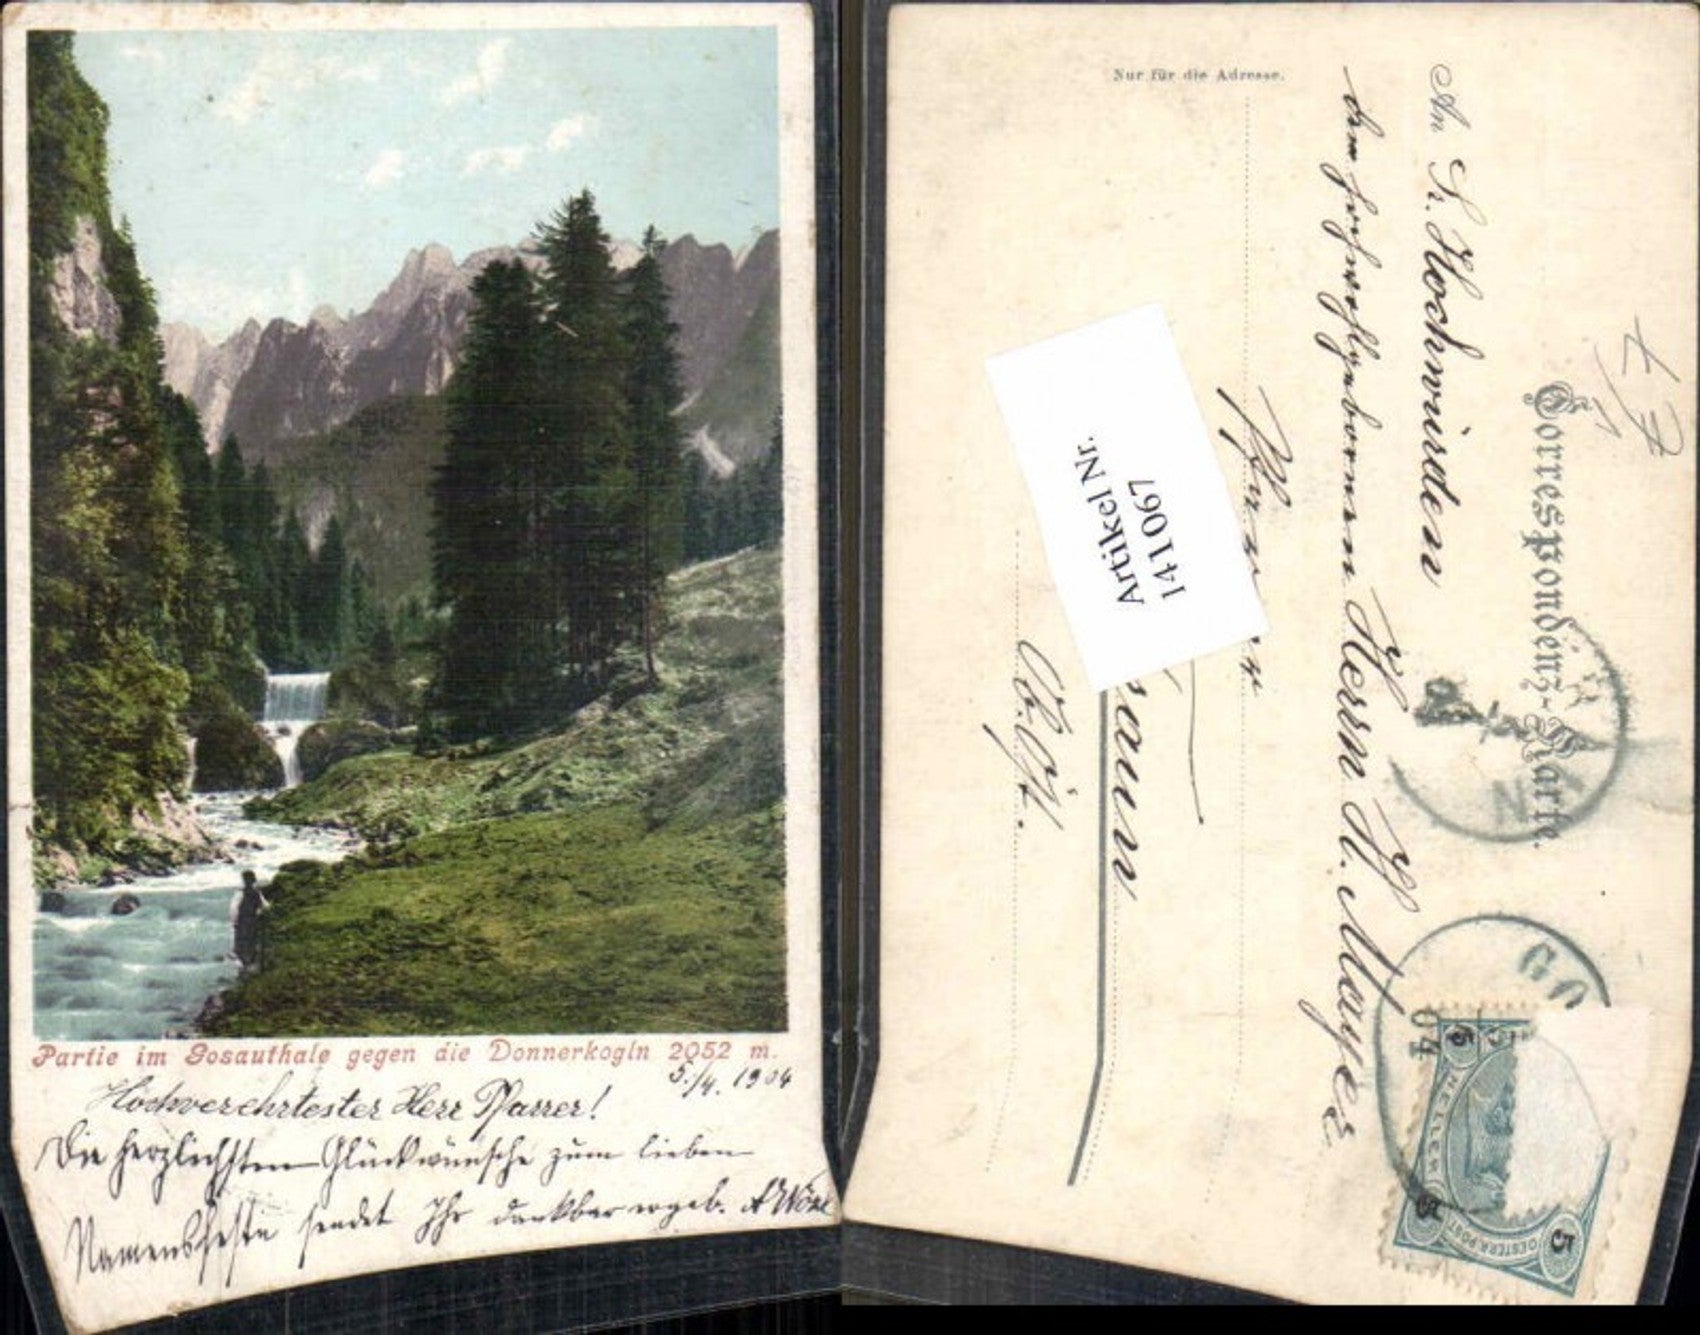 Partie im Gosauthale gegen die Donnerkogln 2052 m.
5./4. 1904
Hochverehrtester Herr Pfarrer!
Die herzlichsten Glückwünsche zum lieben
Namensfeste sendet Ihr dankbar ergeb.
Nur für die Adresse.
Correspondenz-Karte.
An Sr. Hochwürden
dem hochwohlgebornen Herrn H. Mayer
Pfarrer
Artikel Nr.
141067
O.Öst.
GO
04
5
HELLER
5
OESTERR. POST
5